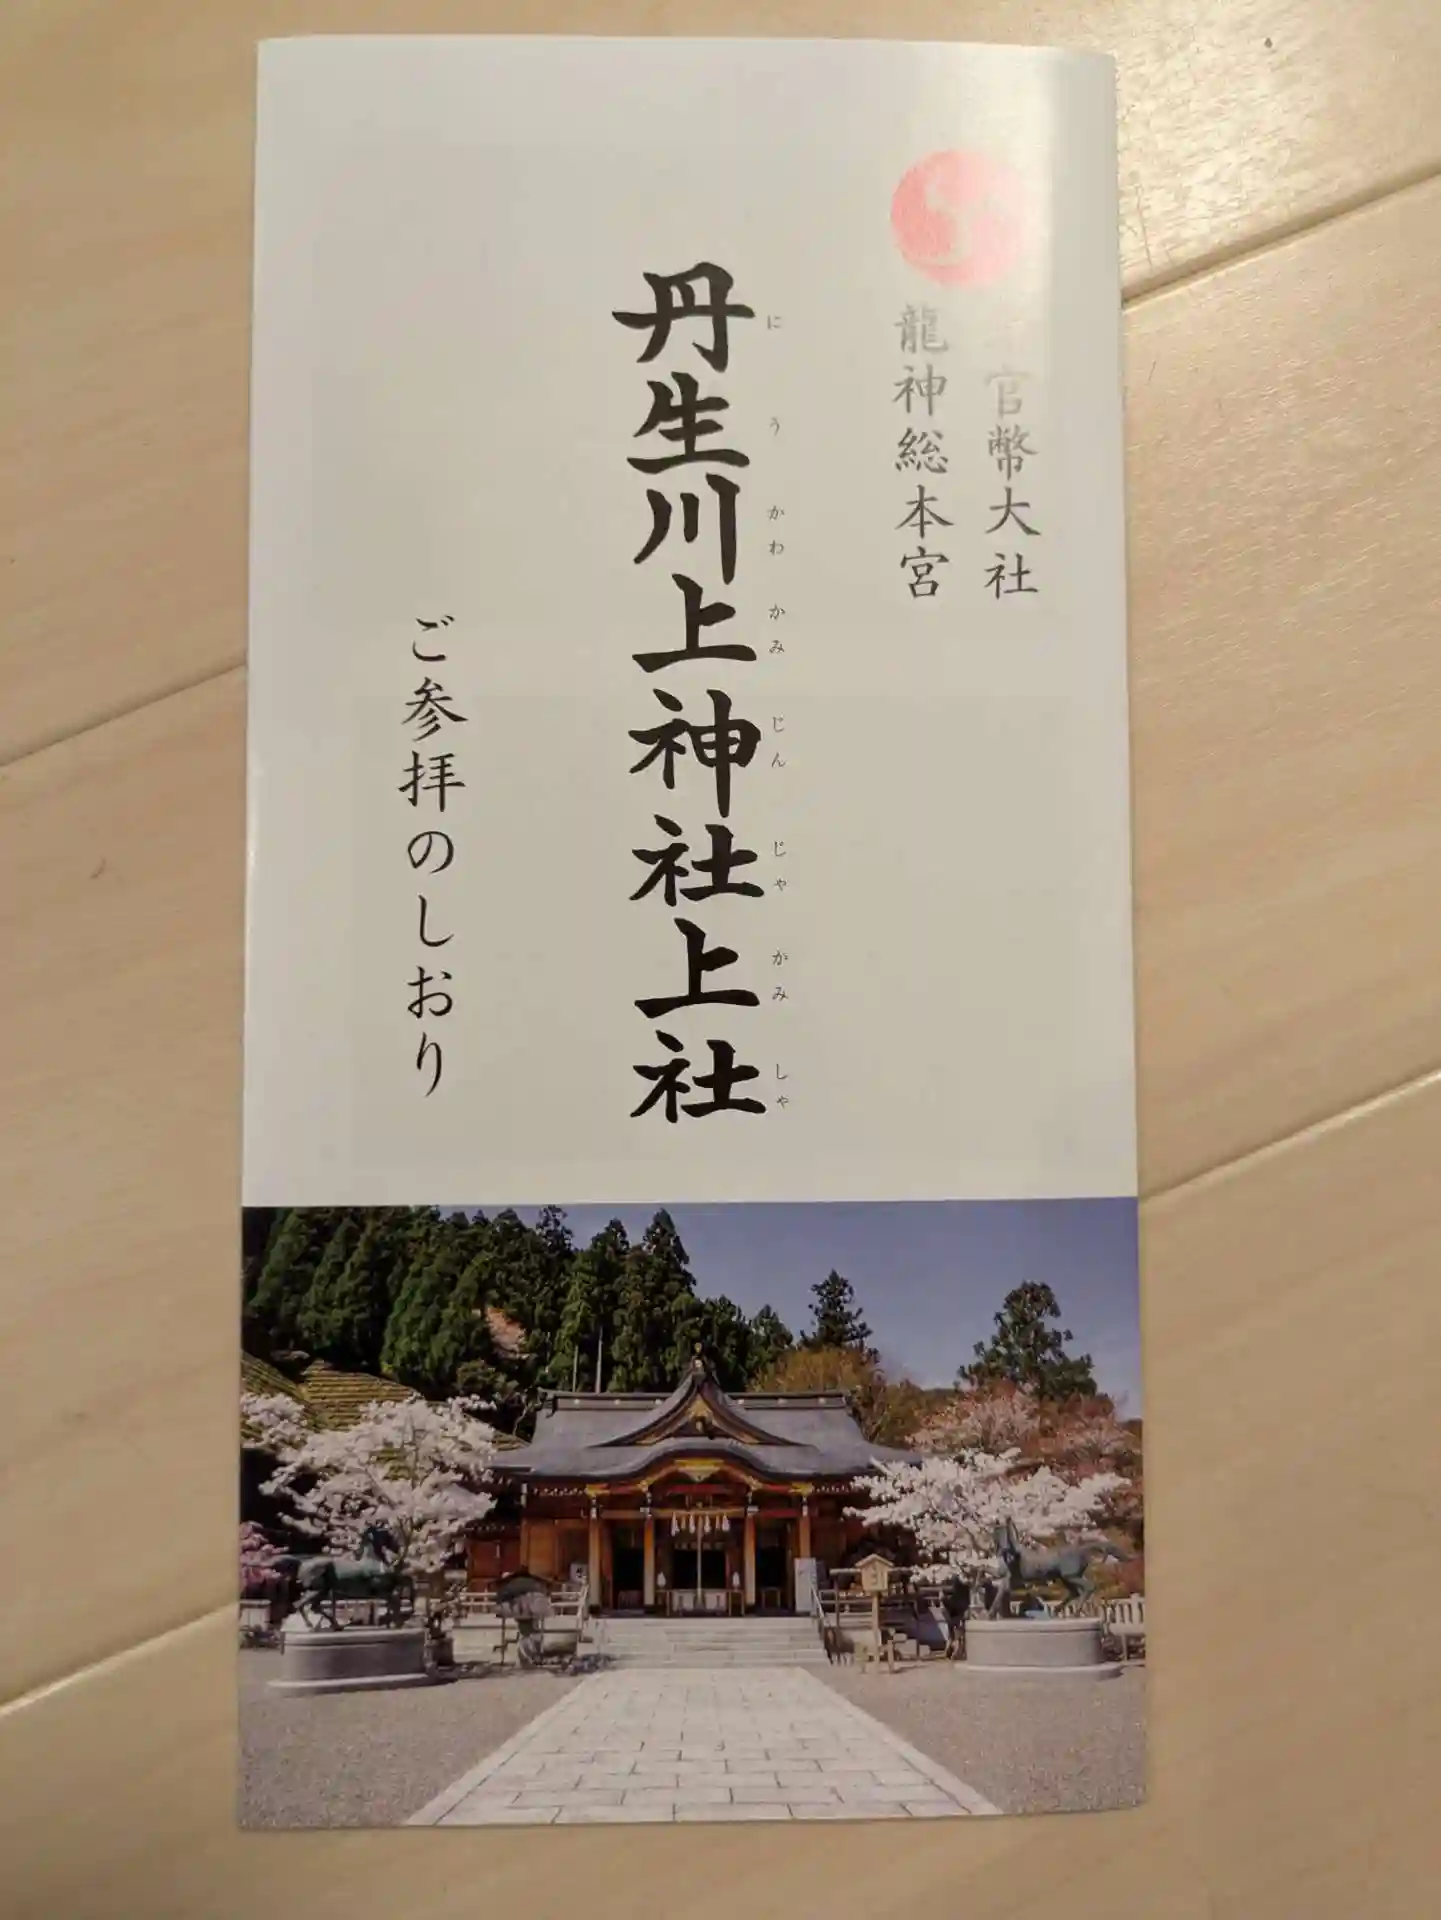 官幣大社
龍神総本宮
丹生川上神社上社
にうかわかみじんじゃかみしゃ
ご参拝のしおり